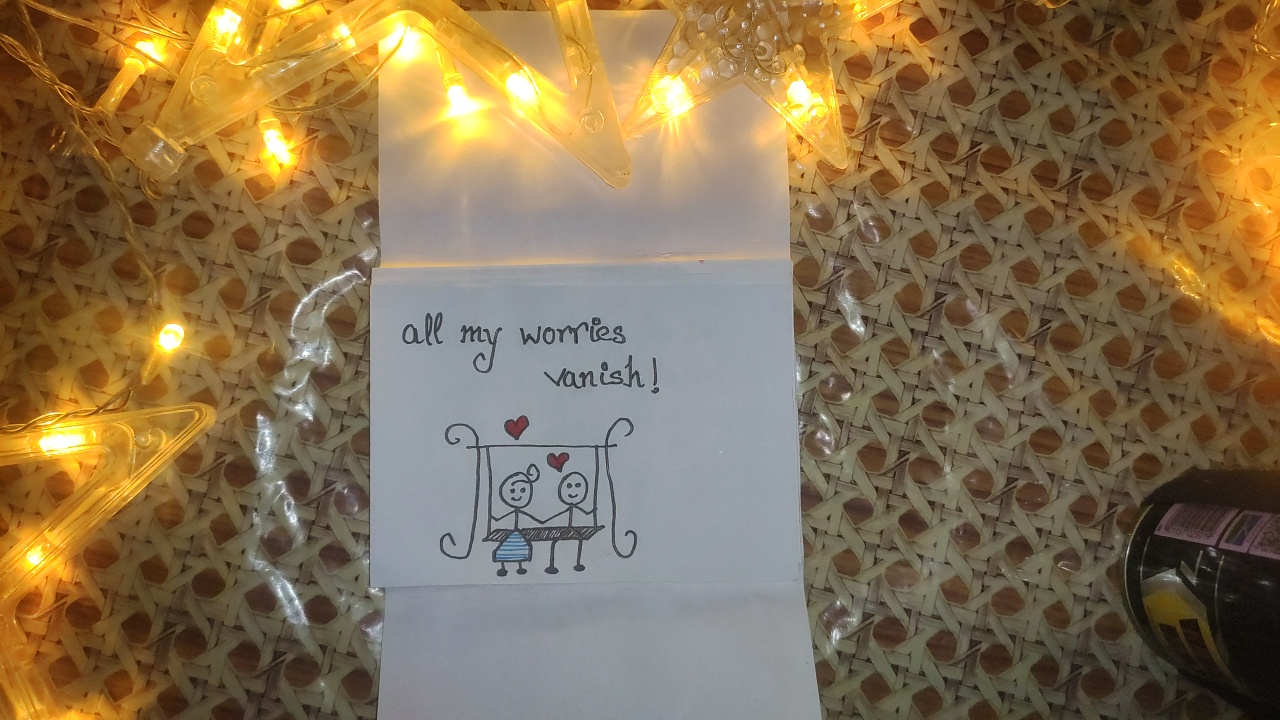 all my worries
vanish!